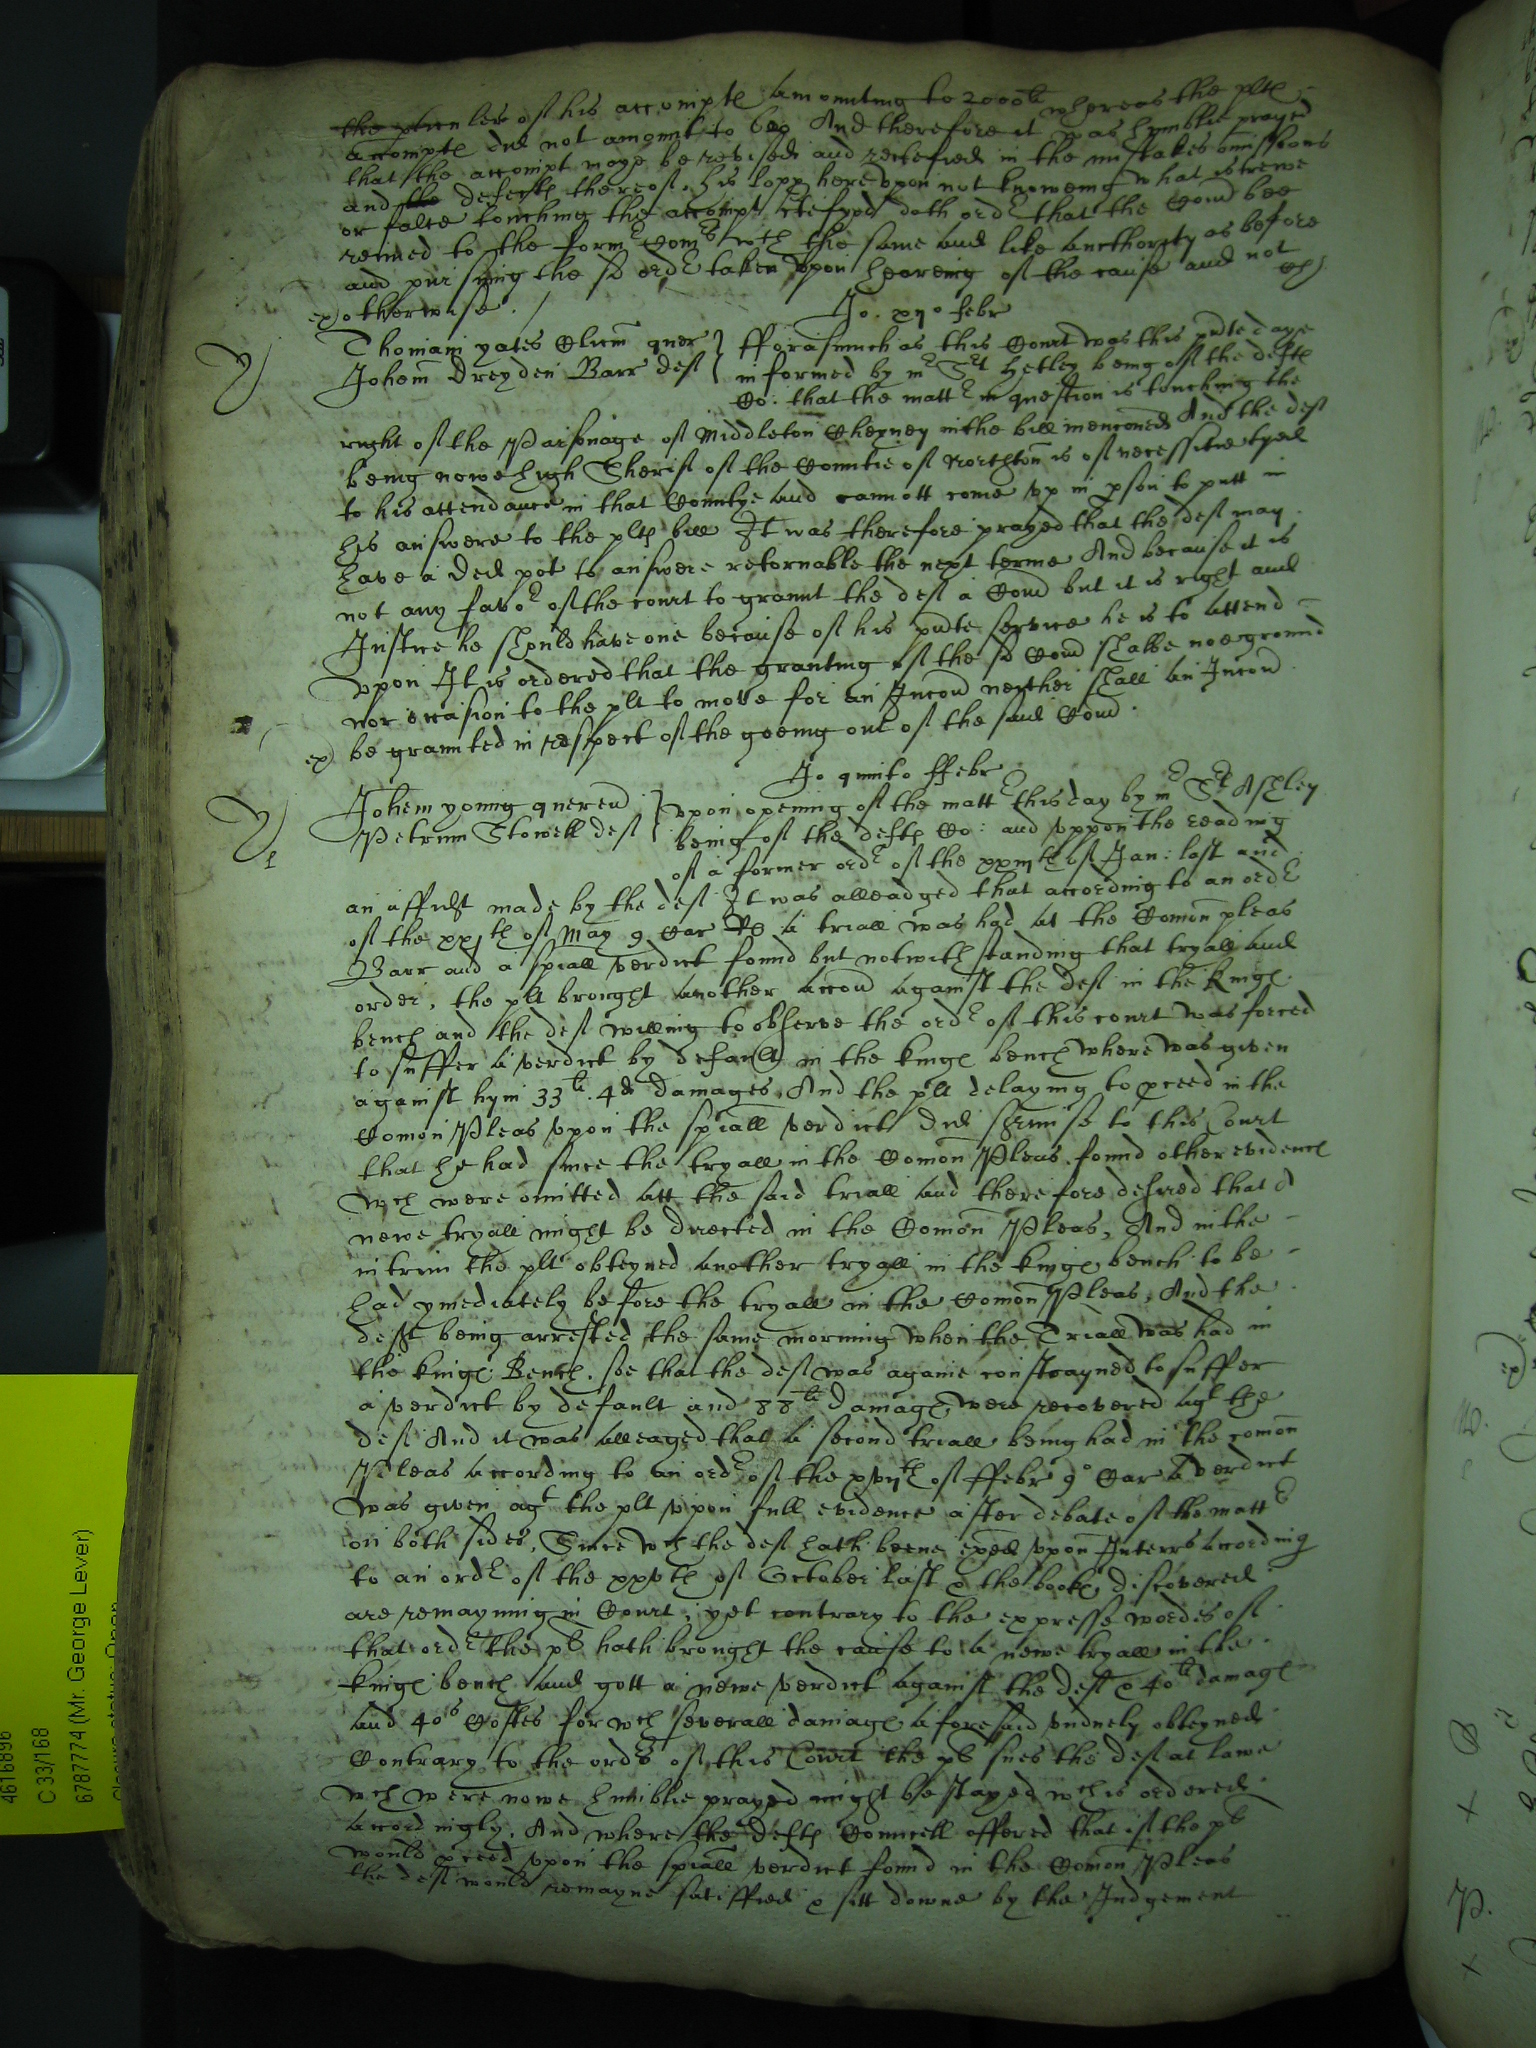 the pticulers of his accompte amounting to 2000li whereas the plts
accompte did not amount to 600 And therefore it was humblie prayed
that the accompt maye be revised and rectefied in the mistakes omissions
and the defects thereof. his lopp hereupon not knoweing what is trewe
or false touching the accompt doth ordr that the Comd bee
renued to the formr Comrs wth the same and like aucthority as before
and pursuing the sd ordr taken upon heareing of the cause and not
otherwise.
Jo. xijo febr
Thomam yates Clicum quer } fforasmuch as this Court was this pnte daye
Johem Dreyden Barr def } informed by mr Srt Hetley being of the defts
Co: that the mattr in question is touching the
right of the Parsonage of Middleton Cheyney in the bill menconed And the def
being nowe high Sherif of the Countie of Northton is of necessitie tyed
to his attendance in that Countye and cannott come up in pson to putt in
his answere to the plts bill It was therefore prayed that the def may
have a ded pot to answere retornable the next terme And because it is
not any favor of the court to graunt the def a Comd but it is right and
Justice he should have one because of his pnte service he is to attend
upon It is ordered that the granting of the sd Comd shalbe noe ground
nor occasion to the plt to move for an Incond neyther shall an Incond
be graunted in respect of the goeing out of the said Comd.
Jo quinto ffebr
Johem yonng querend } upon opening of the mattr this day by mr Srt Ashley
Petrum Stowell def } being of the defts Co: and uppon the reading
of a former ordr of the xxiijth of Jan: last and
an affidt made by the def It was alleadged that according to an ordr
of the xxjth of May 9 Car Rs a triall was had at the Comon pleas
Barr and a spiall verdict found but notwithstanding that tryall and
order, the plt brought another accond against the def in the Kings
bench and the def willing to observe the ordr of this court was forced
to suffer a verdict by default in the kings bench where was given
against hym 33li. 4d damages, And the plt delaying to pceed in the
Comon Pleas upon the spiall verdict did surmise to this Court
that he had since the tryall in the Comon Pleas found other evidence
wch were omitted att the said triall and therefore desired that a
newe tryall might be directed in the Comon Pleas, And in the
intrim the plt obteyned another tryall in the kings bench to be
had ymediately before the tryall in the Comon Pleas, And the
deft being arrested the same morning when the Triall was had in
the Kings Bench. soe that the def was againe constrayned to suffer
a verdict by default and 88li damages were recovered agt the
def And it was alleaged that a second triall being had in the comon
Pleas according to an ordr of the xvijth of ffebr 9o Car a verdict
was given agt the plt upon full evidence after debate of the mattr
on both sides, Since wch the def hath beene exed upon Interrs according
to an ordr of the xxvth of October last & the books discovered
are remayning in Court, yet contrary to the expresse wordes of
that ordr the plt hath brought the cause to a newe tryall in the
kings bench and gott a newe verdict against the deft & 40li damage
and 40s Costes for wch severall damages aforesaid unduely obteyned
Contrary to the ordrs of this Court the plt sues the def at lawe
wch were nowe humblie prayed might be stayed wch is ordered
accordingly. And where the defts Councell offered that if the plt
would pceed upon the spiall verdict found in the Comon Pleas
the deft would remayne satisfied & sitt downe by the Judgement
4616896
C 33/168
6787774 (Mr. George Lever)